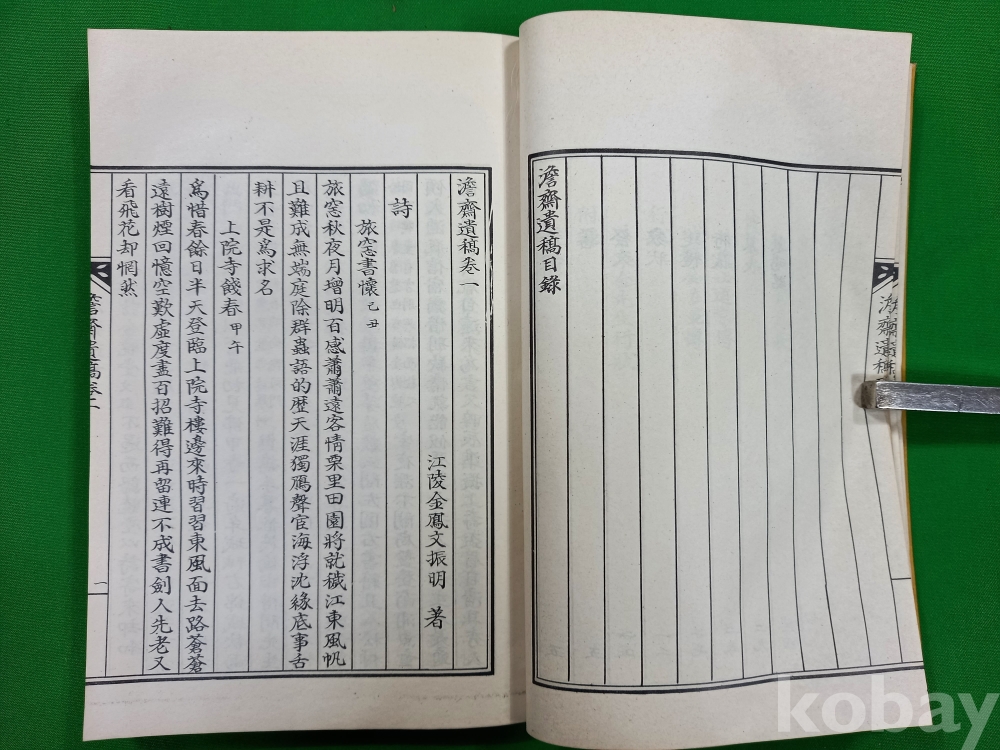 澹齋遺稿目錄
澹齋遺稿
澹齋遺稿卷一
江陵金鳳文振明 著
詩
旅窓書懷 己丑
旅窓秋夜月增明百感蕭蕭遠客情栗里田園將就穢江東風帆
且難成無端庭除群蟲語的歷天涯獨鴈聲宦海浮沈緣底事舌
耕不是爲求名
上院寺餞春 甲午
爲惜春餘日半天登臨上院寺樓邊來時習習東風面去路蒼蒼
遠樹煙回憶空歎虛度盡百招難得再留連不成書劍人先老又
看飛花却惘然
澹齋遺稿卷一
一
kobay